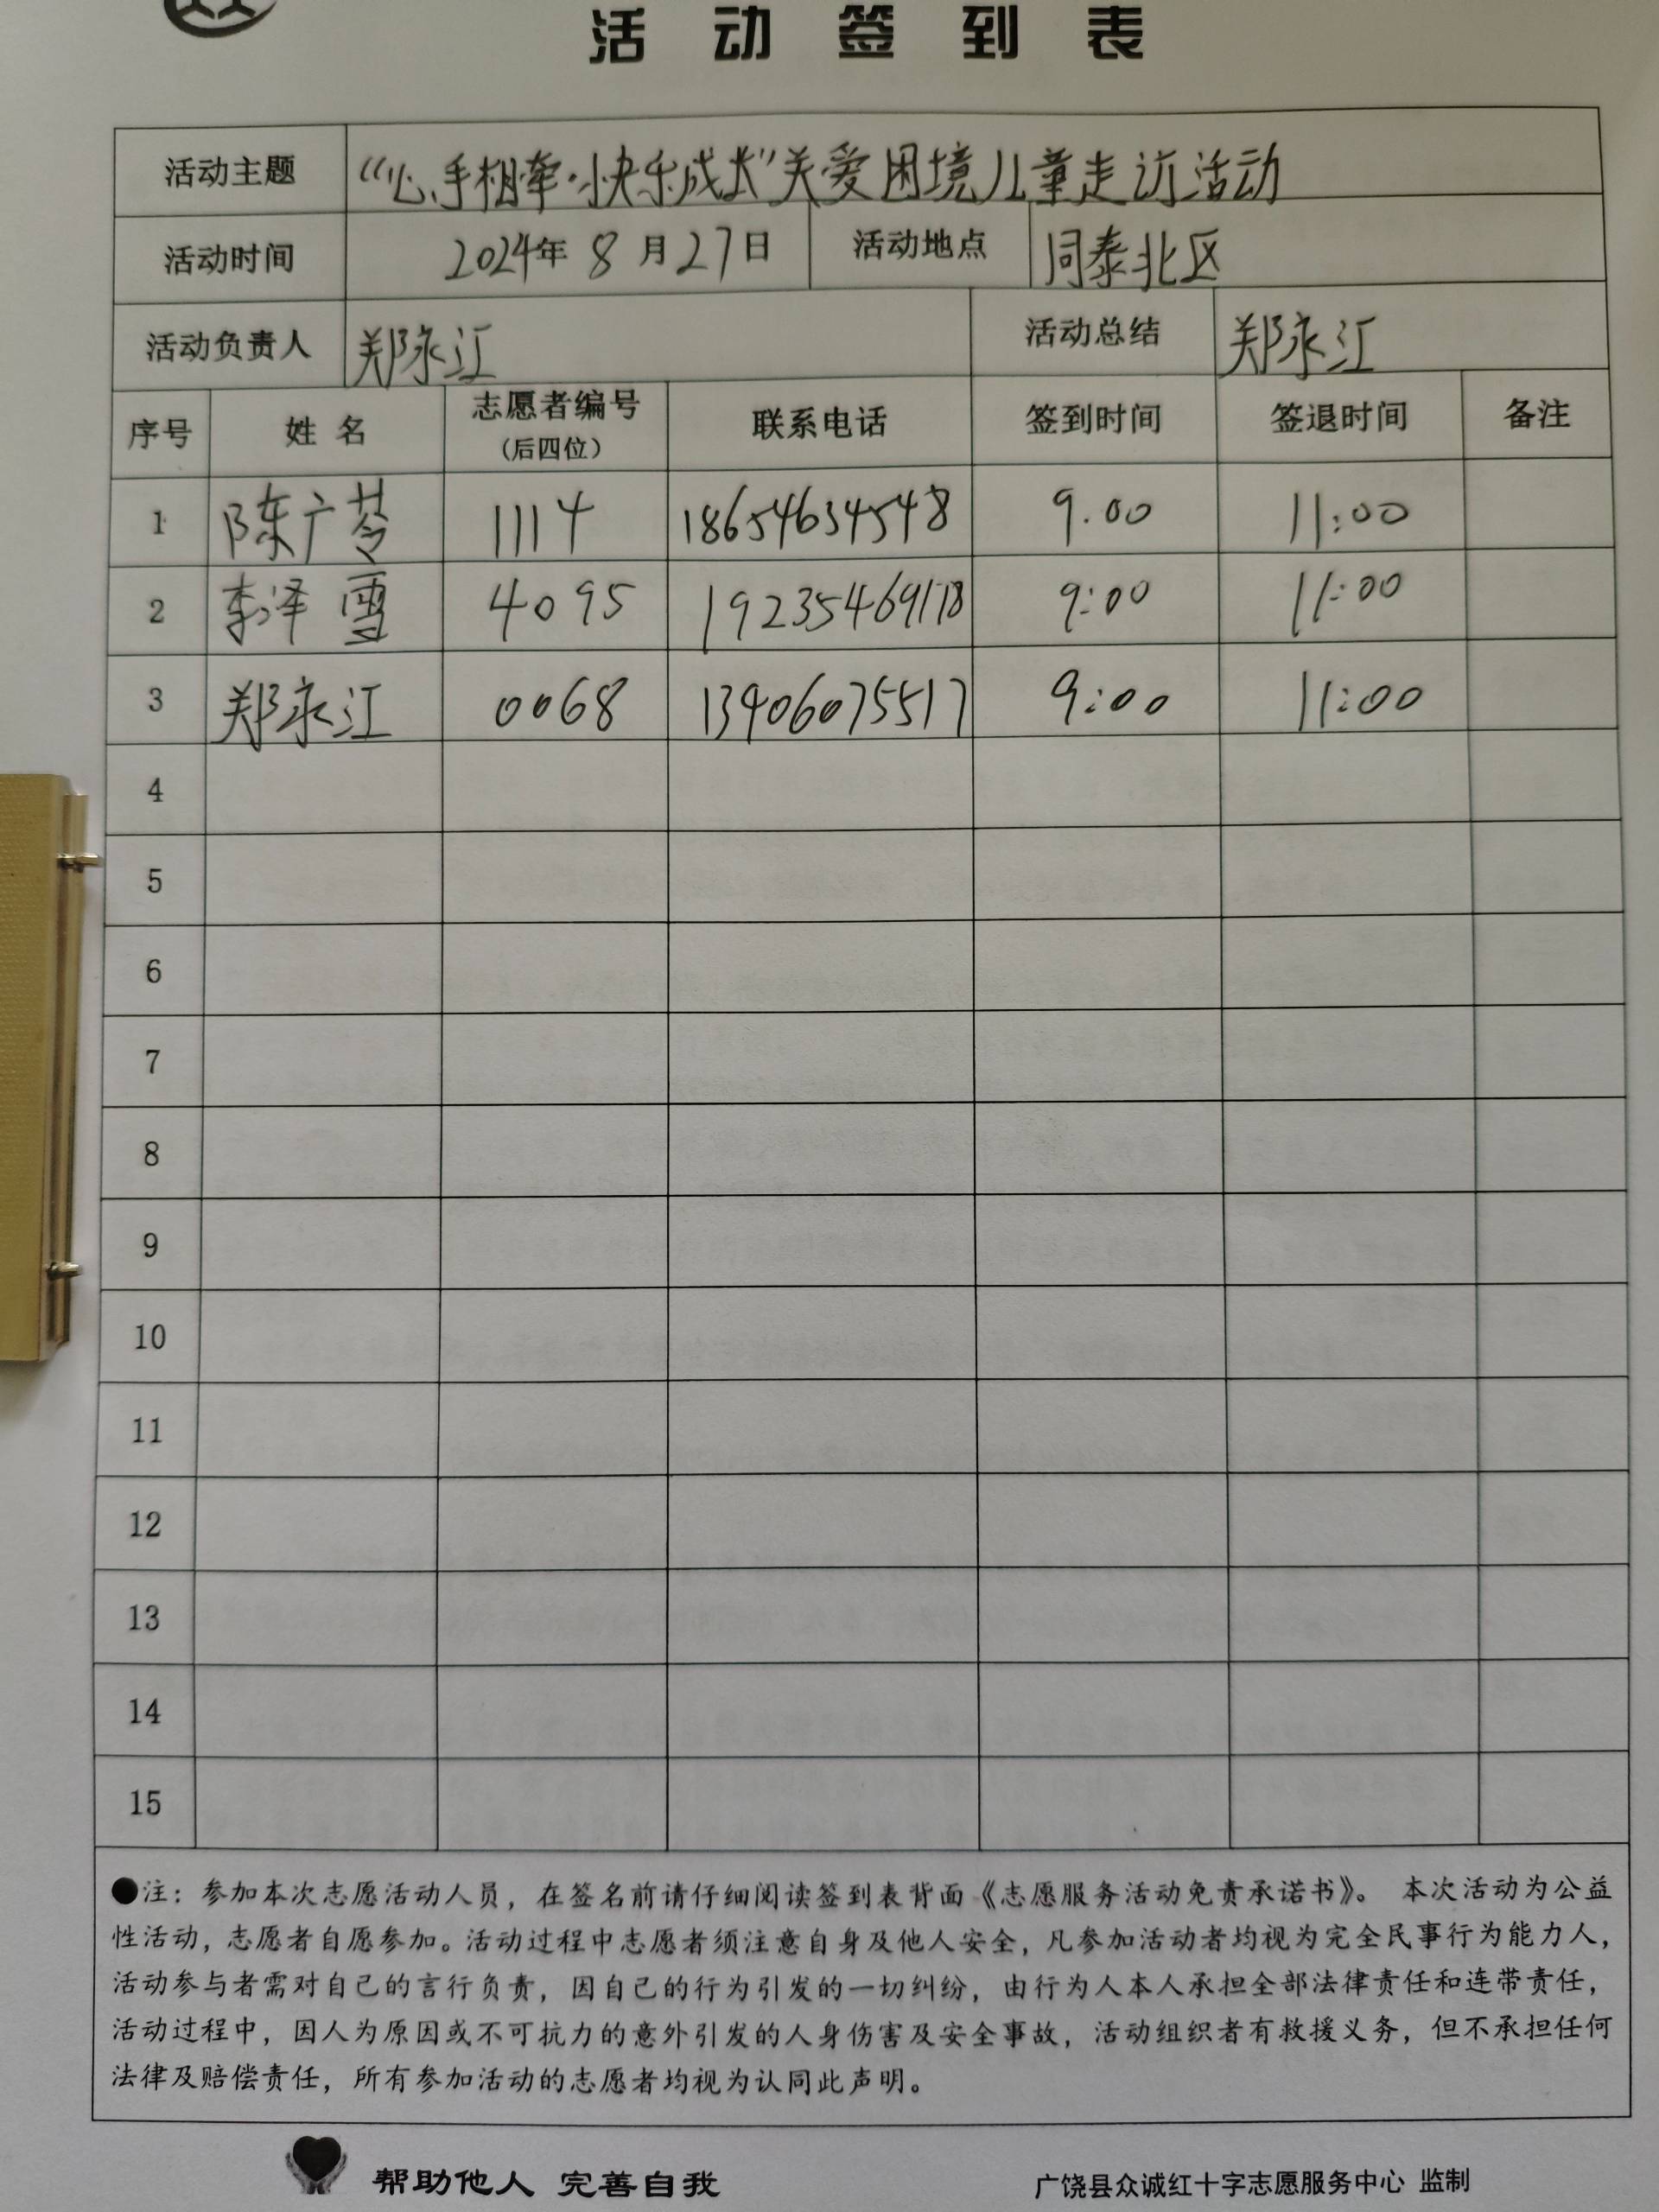 活动签到表
活动主题 “心手相牵·快乐成长”关爱困境儿童走访活动
活动时间 2024年8月27日 活动地点 同泰北区
活动负责人 郑永江 活动总结 郑永江
序号 姓名 志愿者编号（后四位） 联系电话 签到时间 签退时间 备注
1 陈广苓 1114 18654634548 9.00 11:00
2 李泽雪 4095 9:00 11:00
3 郑永江 0068 13406075517 9:00 11:00
4
5
6
7
8
9
10
11
12
13
14
15
●注：参加本次志愿活动人员，在签名前请仔细阅读签到表背面《志愿服务活动免责承诺书》。 本次活动为公益
性活动，志愿者自愿参加。活动过程中志愿者须注意自身及他人安全，凡参加活动者均视为完全民事行为能力人，
活动参与者需对自己的言行负责，因自己的行为引发的一切纠纷，由行为人本人承担全部法律责任和连带责任，
活动过程中，因人为原因或不可抗力的意外引发的人身伤害及安全事故，活动组织者有救援义务，但不承担任何
法律及赔偿责任，所有参加活动的志愿者均视为认同此声明。
帮助他人 完善自我 广饶县众诚红十字志愿服务中心 监制